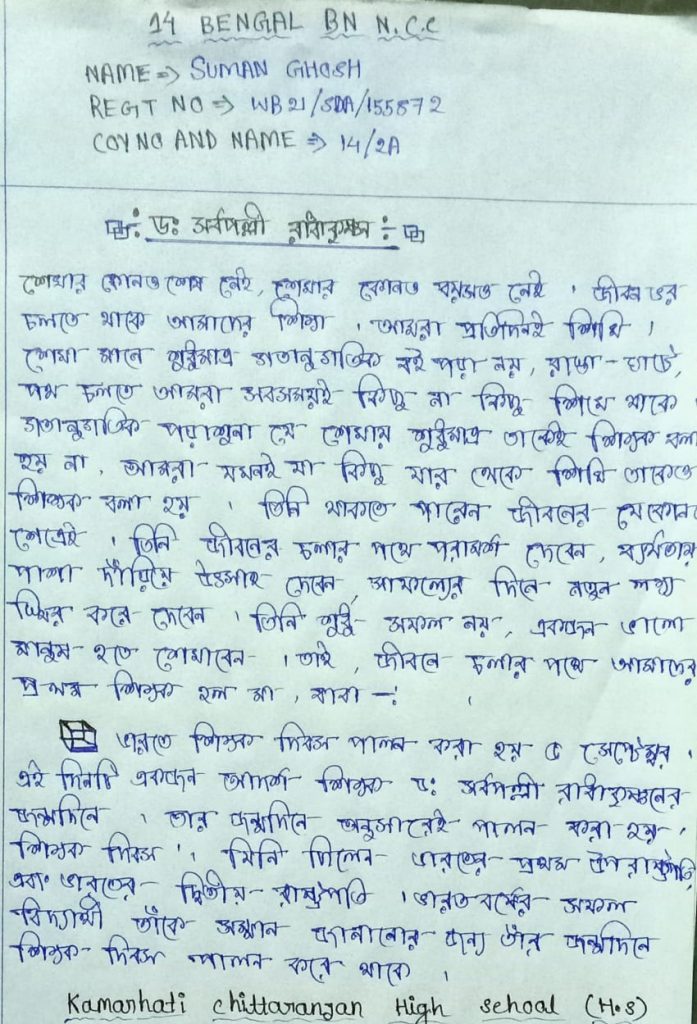 14 BENGAL BN N.C.C
NAME => SUMAN GHOSH
REGT NO => WB21/SDA/155872
COYNO AND NAME => 14/2A
ডঃ সর্বপল্লী রাধাকৃষ্ণন ÷
শেখার কোনও শেষ নেই, শেখার কোনও বয়সও নেই । জীবন ভর
চলতে থাকে আমাদের শিক্ষা । আমরা প্রতিদিনই শিখি ।
শেখা মানে শুধুমাত্র গতানুগতিক বই পড়া নয়, রাস্তা-ঘাটে,
পথ চলতে আমরা সবসময়ই কিছু না কিছু শিখে থাকি ।
গতানুগতিক পড়াশুনা যে শেখায় শুধুমাত্র তাকেই শিক্ষক বলা
হয় না, আমরা যখনই যা কিছু যার থেকে শিখি তাকেও
শিক্ষক বলা হয় । তিনি থাকতে পারেন জীবনের যেকোন
ক্ষেত্রেই । তিনি জীবনের চলার পথে পরামর্শ দেবেন, ব্যর্থতায়
পাশে দাঁড়িয়ে উৎসাহ দেবেন, সাফল্যের দিনে নতুন লক্ষ্য
স্থির করে দেবেন । তিনি শুধু সফল নয়, একজন ভালো
মানুষ হতে শেখাবেন । তাই, জীবনে চলার পথে আমাদের
প্রথম শিক্ষক হল মা, বাবা -! ।
ভারতে শিক্ষক দিবস পালন করা হয় ৫ সেপ্টেম্বর ।
এই দিনটি একজন আদর্শ শিক্ষক ডঃ সর্বপল্লী রাধাকৃষ্ণনের
জন্মদিনে । তার জন্মদিনে অনুসারেই পালন করা হয়
শিক্ষক দিবস । যিনি ছিলেন ভারতের প্রথম উপরাষ্ট্রপতি
এবং ভারতের দ্বিতীয় রাষ্ট্রপতি । ভারতবর্ষের সকল
বিদ্যার্থী তাঁকে সম্মান জানানোর জন্য তাঁর জন্মদিনে
শিক্ষক দিবস পালন করে থাকে ।
Kamarhati Chittaranjan High School (H.S)